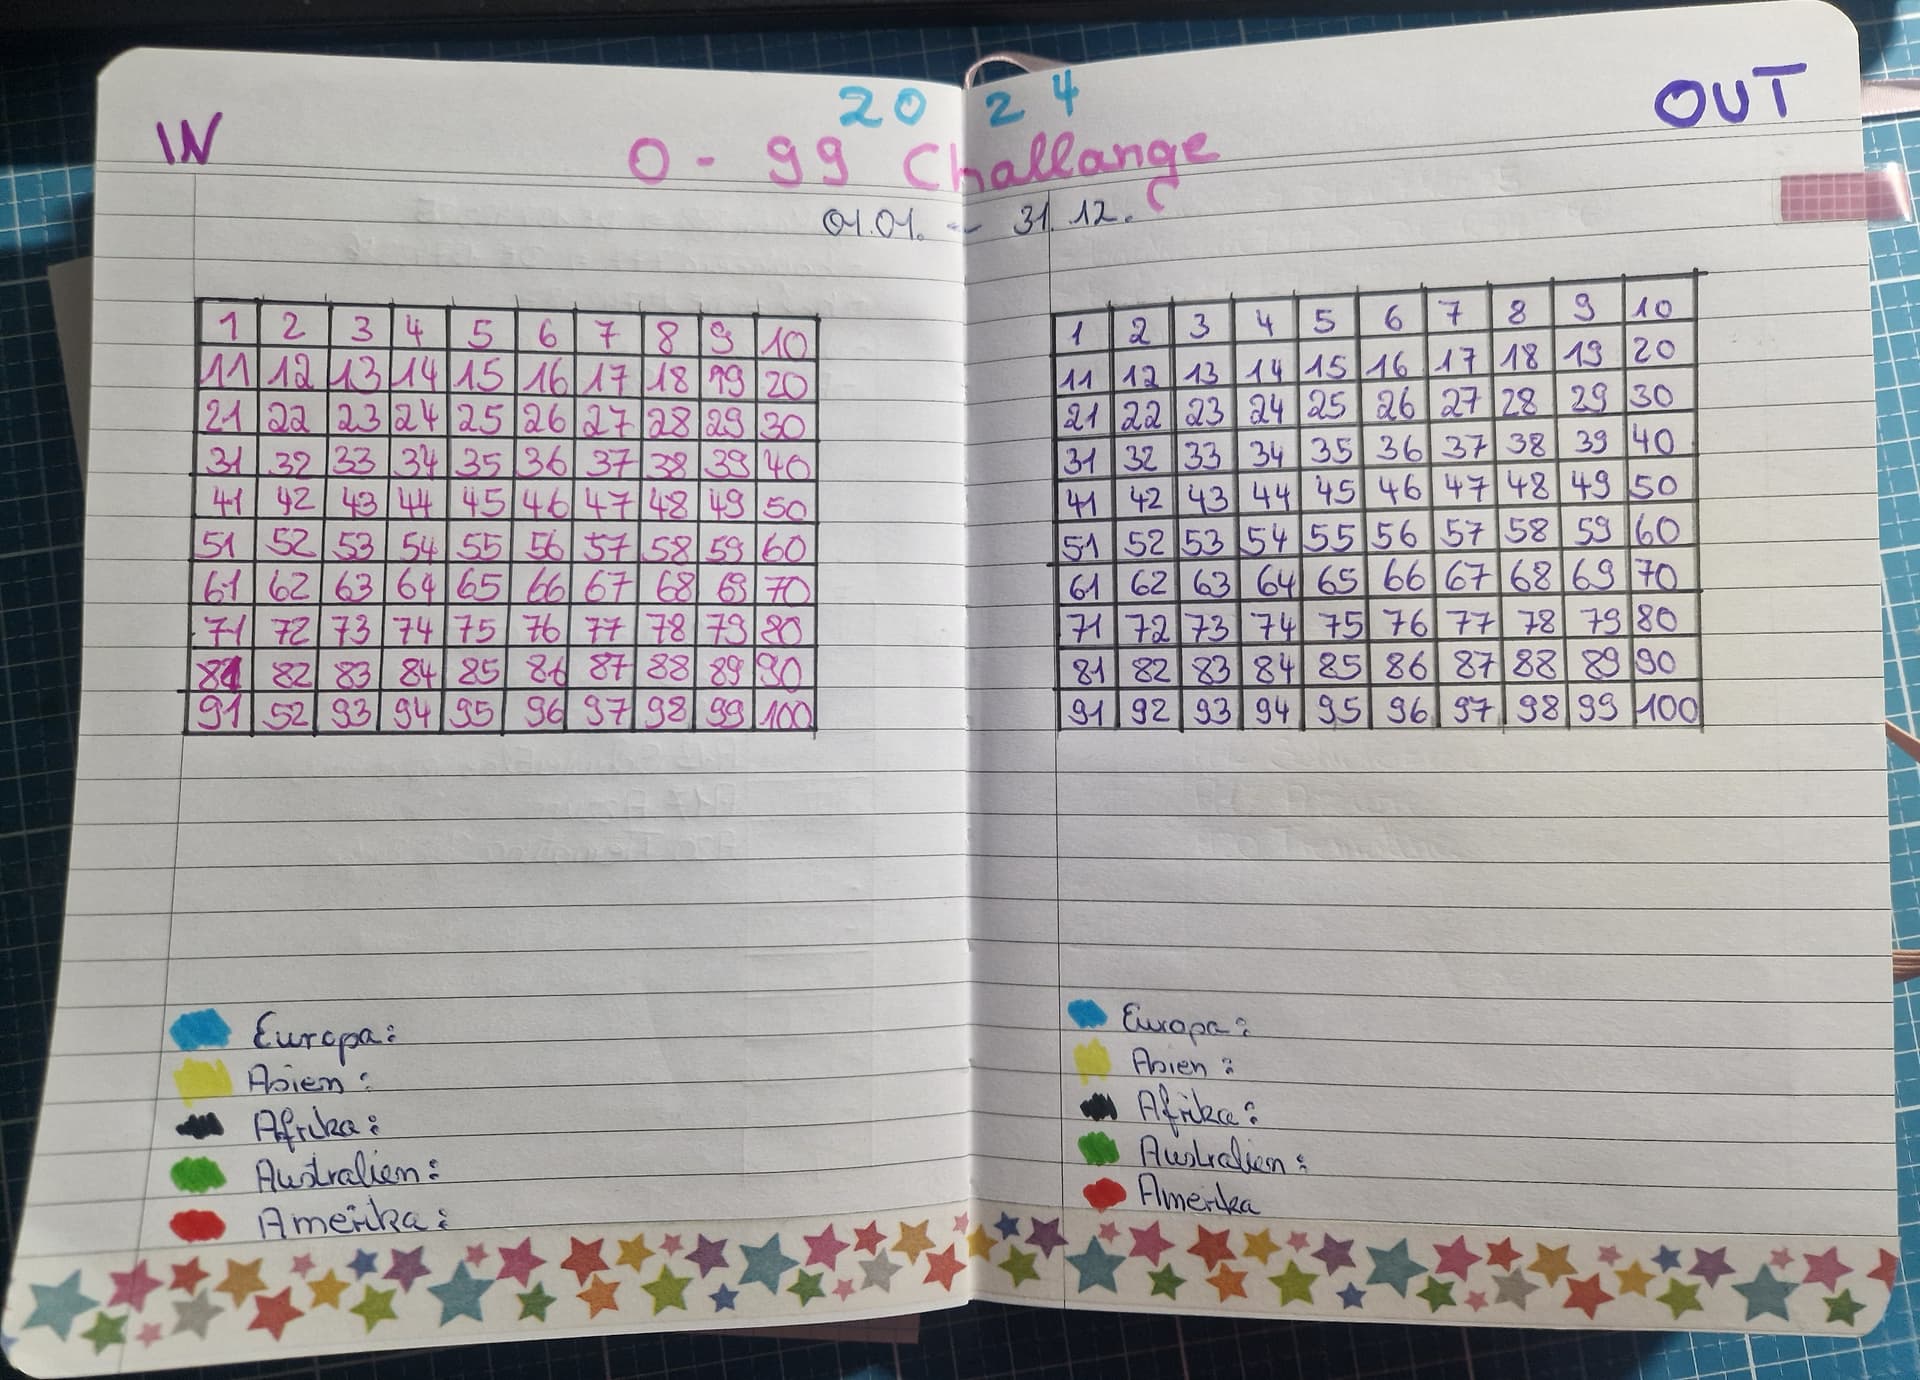 IN
2024
OUT
0 - 99 Challange
01.01. - 31.12.
1 2 3 4 5 6 7 8 9 10
11 12 13 14 15 16 17 18 19 20
21 22 23 24 25 26 27 28 29 30
31 32 33 34 35 36 37 38 39 40
41 42 43 44 45 46 47 48 49 50
51 52 53 54 55 56 57 58 59 60
61 62 63 64 65 66 67 68 69 70
71 72 73 74 75 76 77 78 79 80
81 82 83 84 85 86 87 88 89 90
91 52 93 94 95 96 97 98 99 100
Europa:
Asien:
Afrika:
Australien:
Amerika:
1 2 3 4 5 6 7 8 9 10
11 12 13 14 15 16 17 18 19 20
21 22 23 24 25 26 27 28 29 30
31 32 33 34 35 36 37 38 39 40
41 42 43 44 45 46 47 48 49 50
51 52 53 54 55 56 57 58 59 60
61 62 63 64 65 66 67 68 69 70
71 72 73 74 75 76 77 78 79 80
81 82 83 84 85 86 87 88 89 90
91 92 93 94 95 96 97 98 99 100
Europa:
Asien:
Afrika:
Australien:
Amerika